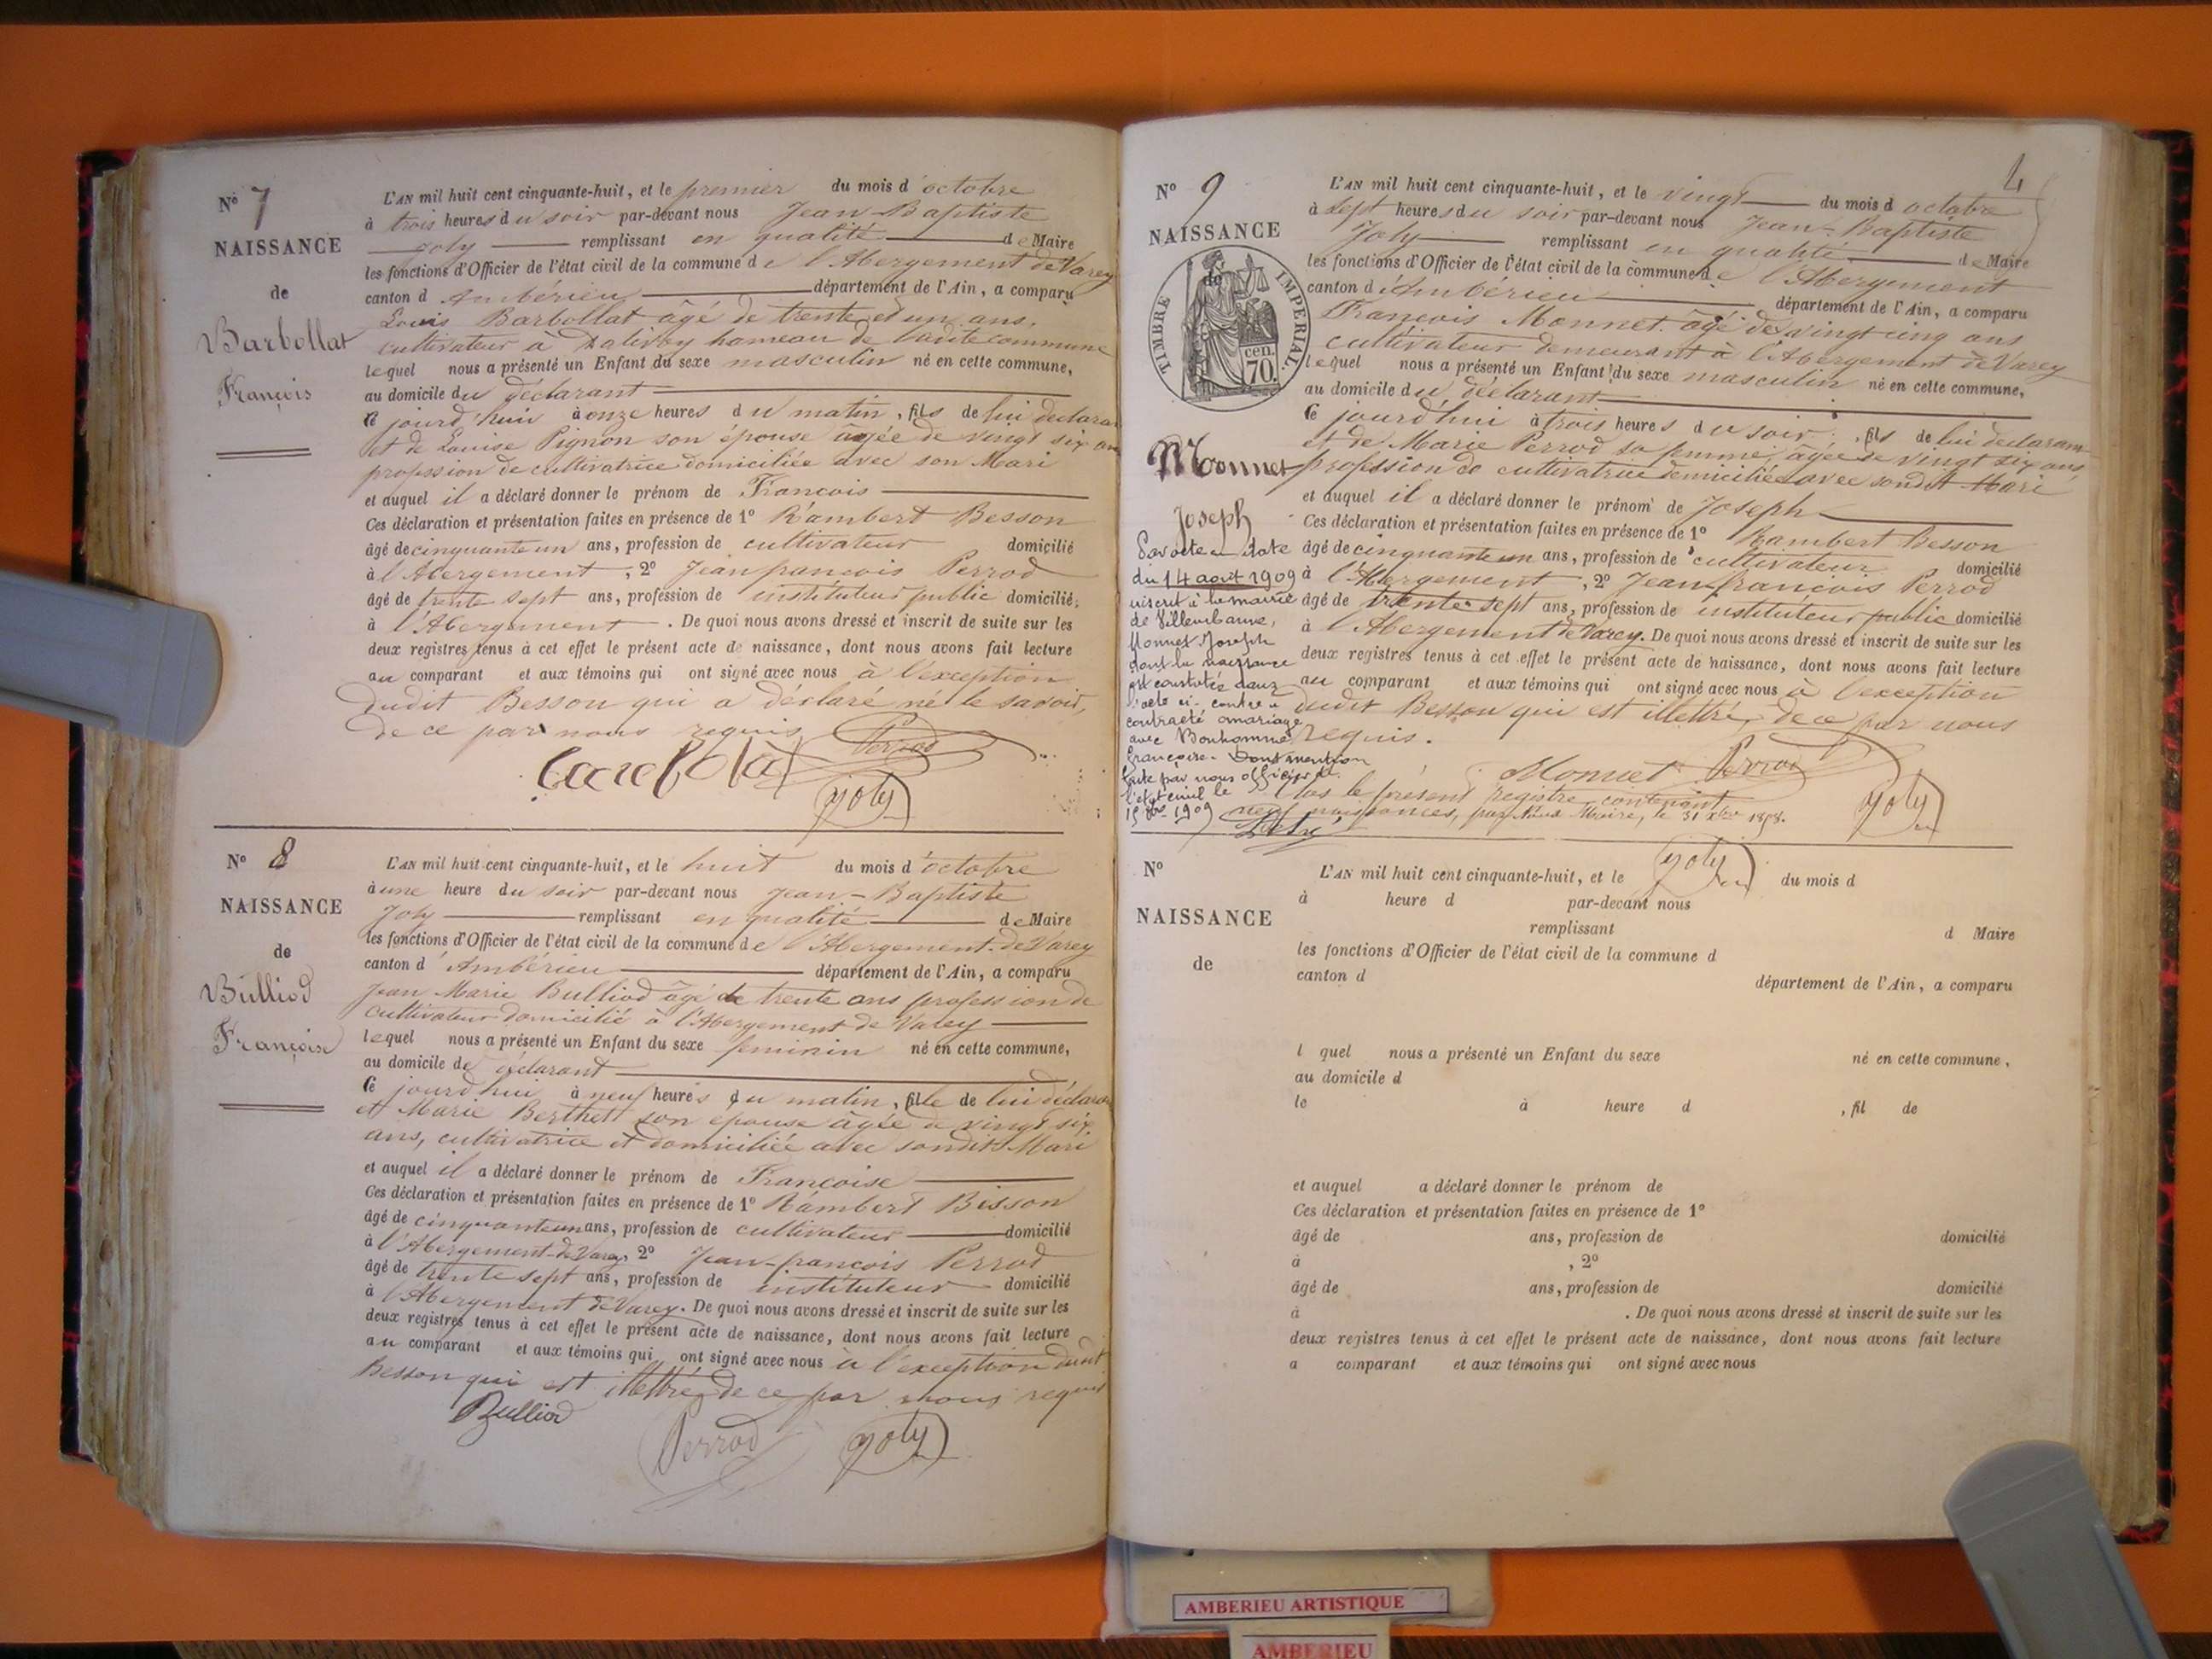 N° 7
NAISSANCE
de
Barbollat
François
L'AN mil huit cent cinquante-huit, et le premier du mois d'octobre
à trois heures du soir par-devant nous Jean-Baptiste
Joly remplissant en qualité de Maire
les fonctions d'Officier de l'état civil de la commune de l'Abergement de Varey
canton d'Ambérieu département de l'Ain, a comparu
Louis Barbollat âgé de trente et un ans,
cultivateur à hameau de ladite commune
lequel nous a présenté un Enfant du sexe masculin né en cette commune,
au domicile du déclarant
Ce jourd'hui à onze heures du matin, fils de lui déclarant
et de Louise Pignon son épouse âgée de vingt six ans
profession de cultivatrice domiciliée avec son Mari
et auquel il a déclaré donner le prénom de François
Ces déclaration et présentation faites en présence de 1° Rambert Besson
âgé de cinquante un ans, profession de cultivateur domicilié
à l'Abergement, 2° Jean françois Perrod
âgé de trente sept ans, profession de instituteur public domicilié
à l'Abergement. De quoi nous avons dressé et inscrit de suite sur les
deux registres tenus à cet effet le présent acte de naissance, dont nous avons fait lecture
au comparant et aux témoins qui ont signé avec nous à l'exception
dudit Besson qui a déclaré ne le savoir,
de ce par nous requis
Perrod
Joly
N° 8
NAISSANCE
de
Bulliod
Françoise
L'AN mil huit cent cinquante-huit, et le huit du mois d'octobre
à une heure du soir par-devant nous Jean-Baptiste
Joly remplissant en qualité de Maire
les fonctions d'Officier de l'état civil de la commune de l'Abergement-de Varey
canton d'Ambérieu département de l'Ain, a comparu
Jean Marie Bulliod âgé de trente ans profession de
cultivateur domicilié à l'Abergement de Varey
lequel nous a présenté un Enfant du sexe féminin né en cette commune,
au domicile du déclarant
Ce jourd'hui à neuf heures du matin, fille de lui déclarant
et Marie Berthet son épouse âgée de vingt six
ans, cultivatrice et domiciliée avec sondit Mari
et auquel il a déclaré donner le prénom de Françoise
Ces déclaration et présentation faites en présence de 1° Rambert Besson
âgé de cinquante un ans, profession de cultivateur domicilié
à l'Abergement-de Varey, 2° Jean-françois Perrod
âgé de trente sept ans, profession de instituteur domicilié
à l'Abergement de Varey. De quoi nous avons dressé et inscrit de suite sur les
deux registres tenus à cet effet le présent acte de naissance, dont nous avons fait lecture
au comparant et aux témoins qui ont signé avec nous à l'exception dudit
Besson qui est illettré, de ce par nous requis
Bulliod
Perrod
Joly
4
N° 9
NAISSANCE
de
TIMBRE IMPERIAL
70 cen.
Monnet
Joseph
Par acte en date
du 14 août 1909
inscrit à la mairie
de Villeurbanne,
Monnet Joseph
dont la naissance
est constatée dans
l'acte ci-contre a
contracté mariage
avec Bonhomme
Françoise. Dont mention
faite par nous officier de
l'état civil le
15 1909
L'AN mil huit cent cinquante-huit, et le vingt du mois d'octobre
à sept heures du soir par-devant nous Jean-Baptiste
Joly remplissant en qualité de Maire
les fonctions d'Officier de l'état civil de la commune de l'Abergement
canton d'Ambérieu département de l'Ain, a comparu
François Monnet âgé de vingt cinq ans
cultivateur demeurant à l'Abergement de Varey
lequel nous a présenté un Enfant du sexe masculin né en cette commune,
au domicile du déclarant
Ce jourd'hui à trois heures du soir, fils de lui déclarant
et de Marie Perrod sa femme, âgée de vingt six ans,
profession de cultivatrice domiciliée avec sondit Mari
et auquel il a déclaré donner le prénom de Joseph
Ces déclaration et présentation faites en présence de 1° Rambert Besson
âgé de cinquante un ans, profession de cultivateur domicilié
à l'Abergement, 2° Jean françois Perrod
âgé de trente sept ans, profession de instituteur public domicilié
à l'Abergement de Varey. De quoi nous avons dressé et inscrit de suite sur les
deux registres tenus à cet effet le présent acte de naissance, dont nous avons fait lecture
au comparant et aux témoins qui ont signé avec nous à l'exception
dudit Besson qui est illettré, de ce par nous
requis.
Monnet Perrod
Joly
Clos le présent registre contenant
neuf naissances, par Nous Maire, le 31 Xbre 1858.
Joly
N°
NAISSANCE
de
L'AN mil huit cent cinquante-huit, et le du mois d
à heure d par-devant nous
remplissant d Maire
les fonctions d'Officier de l'état civil de la commune d
canton d département de l'Ain, a comparu
l quel nous a présenté un Enfant du sexe né en cette commune,
au domicile d
le à heure d , fil de
et auquel a déclaré donner le prénom de
Ces déclaration et présentation faites en présence de 1°
âgé de ans, profession de domicilié
à , 2°
âgé de ans, profession de domicilié
à . De quoi nous avons dressé et inscrit de suite sur les
deux registres tenus à cet effet le présent acte de naissance, dont nous avons fait lecture
a comparant et aux témoins qui ont signé avec nous
AMBERIEU ARTISTIQUE
AMBERIEU